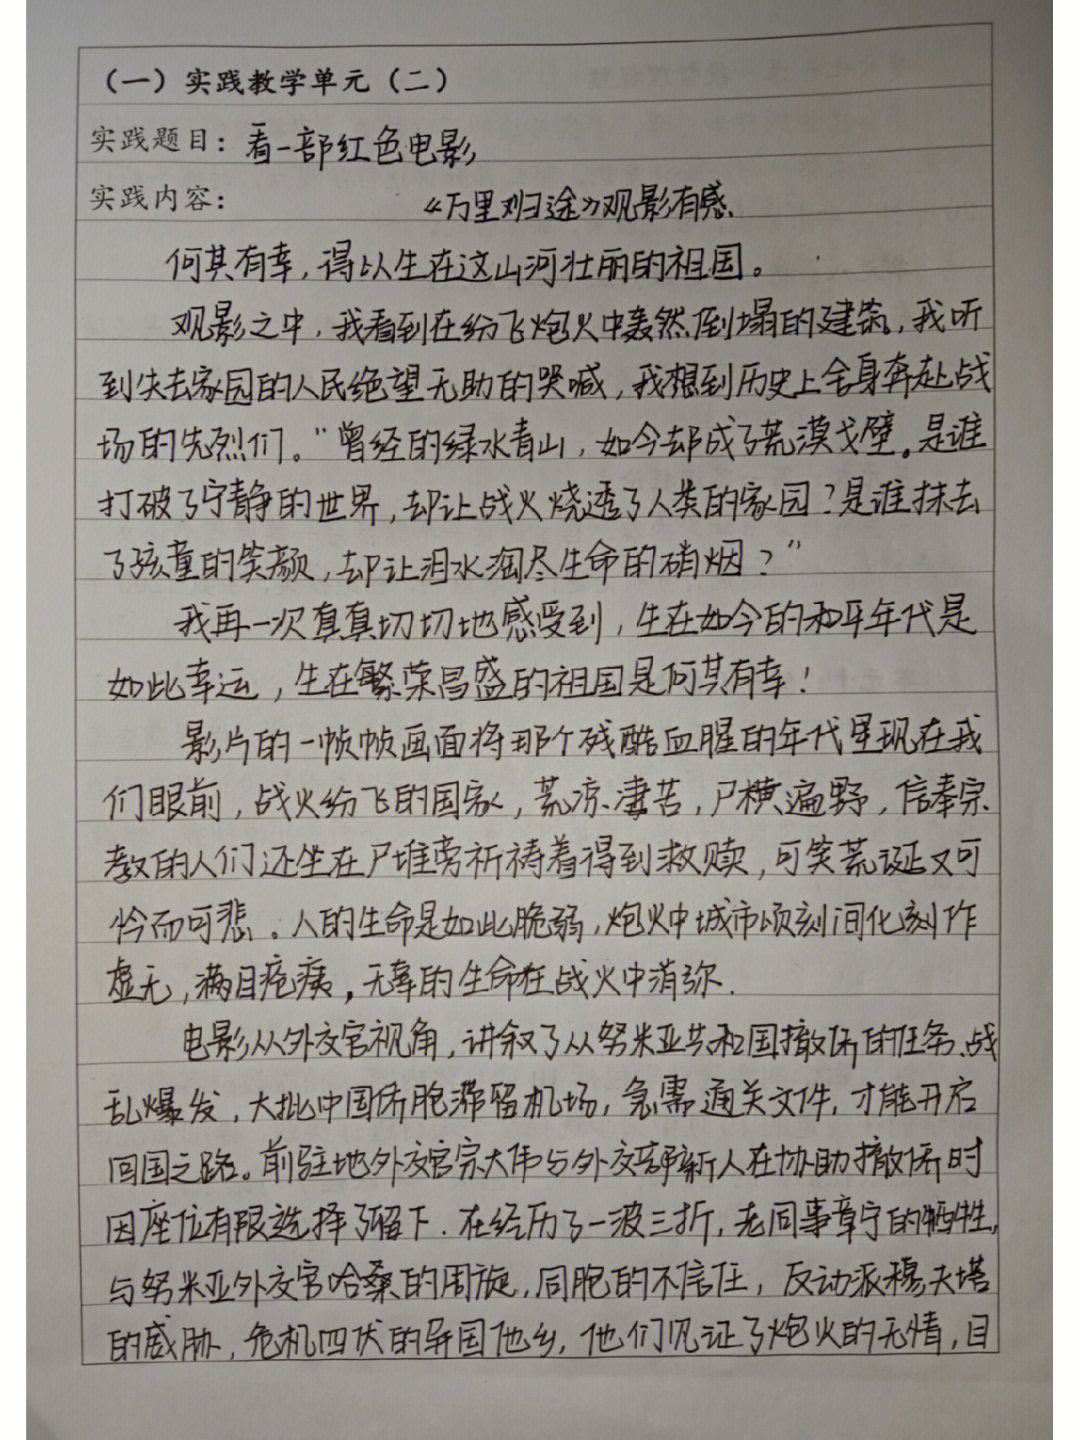 （一）实践教学单元（二）
实践题目：看一部红色电影
实践内容：《万里归途》观影有感.
何其有幸，得以生在这山河壮丽的祖国。
观影之中，我看到在纷飞炮火中轰然倒塌的建筑，我听
到失去家园的人民绝望无助的哭喊，我想到历史上舍身奔赴战
场的先烈们。“曾经的绿水青山，如今却成了荒漠戈壁。是谁
打破了宁静的世界，却让战火烧透了人类的家园？是谁抹去
了孩童的笑颜，却让泪水淘尽生命的硝烟？”
我再一次真真切切地感受到，生在如今的和平年代是
如此幸运，生在繁荣昌盛的祖国是何其有幸！
影片的一帧帧画面将那个残酷血腥的年代呈现在我
们眼前，战火纷飞的国家，荒凉凄苦，尸横遍野，信奉宗
教的人们还坐在尸堆旁祈祷着得到救赎，可笑荒诞又可
怜而可悲。人的生命是如此脆弱，炮火中城市顷刻间化刻作
虚无，满目疮痍，无辜的生命在战火中消弥.
电影从外交官视角，讲叙了从努米亚共和国撤侨的任务.战
乱爆发，大批中国侨胞滞留机场，急需通关文件，才能开启
回国之路。前驻地外交官宗大伟与外交部新人在协助撤侨时
因座位有限选择了留下.在经历了一波三折，老同事章宁的牺牲，
与努米亚外交官哈桑的周旋，同胞的不信任，反动派穆夫塔
的威胁，危机四伏的异国他乡，他们见证了炮火的无情，目